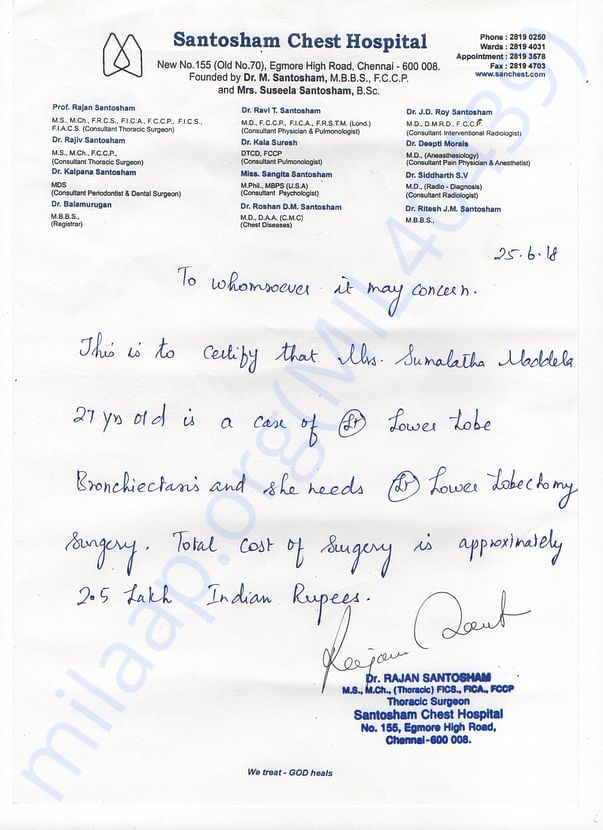 Santosham Chest Hospital
New No.155 (Old No.70), Egmore High Road, Chennai - 600 008.
Founded by Dr. M. Santosham, M.B.B.S., F.C.C.P.
and Mrs. Suseela Santosham, B.Sc.
Phone : 2819 0250
Wards : 2819 4031
Appointment : 2819 3578
Fax : 2819 4703
www.sanchest.com
Prof. Rajan Santosham
M.S., M.Ch., F.R.C.S., F.I.C.A., F.C.C.P., F.I.C.S.,
F.I.A.C.S. (Consultant Thoracic Surgeon)
Dr. Rajiv Santosham
M.S., M.Ch., F.C.C.P.,
(Consultant Thoracic Surgeon)
Dr. Kalpana Santosham
MDS
(Consultant Periodontist & Dental Surgeon)
Dr. Balamurugan
M.B.B.S.,
(Registrar)
Dr. Ravi T. Santosham
M.D., F.C.C.P., F.I.C.A., F.R.S.T.M. (Lond.)
(Consultant Physician & Pulmonologist)
Dr. Kala Suresh
DTCD, FCCP
(Consultant Pulmonologist)
Miss. Sangita Santosham
M.Phil., MBPS (U.S.A)
(Consultant Psychologist)
Dr. Roshan D.M. Santosham
M.D., D.A.A. (C.M.C)
(Chest Diseases)
Dr. J.D. Roy Santosham
M.D., D.M.R.D., F.C.C.P.
(Consultant Interventional Radiologist)
Dr. Deepti Morais
M.D., (Aneasthesiology)
(Consultant Pain Physician & Anesthetist)
Dr. Siddharth S.V
M.D., (Radio - Diagnosis)
(Consultant Radiologist)
Dr. Ritesh J.M. Santosham
M.B.B.S.,
25.6.18
To whomsoever it may concern.
This is to certify that Mrs. Sumalatha Maddela
27 yrs old is a case of Lt Lower Lobe
Bronchiectasis and she needs Lt Lower Lobectomy
Surgery. Total cost of Surgery is approximately
2.5 Lakh Indian Rupees.
Dr. RAJAN SANTOSHAM
M.S., M.Ch., (Thoracic) FICS., FICA., FCCP
Thoracic Surgeon
Santosham Chest Hospital
No. 155, Egmore High Road,
Chennai-600 008.
We treat - GOD heals